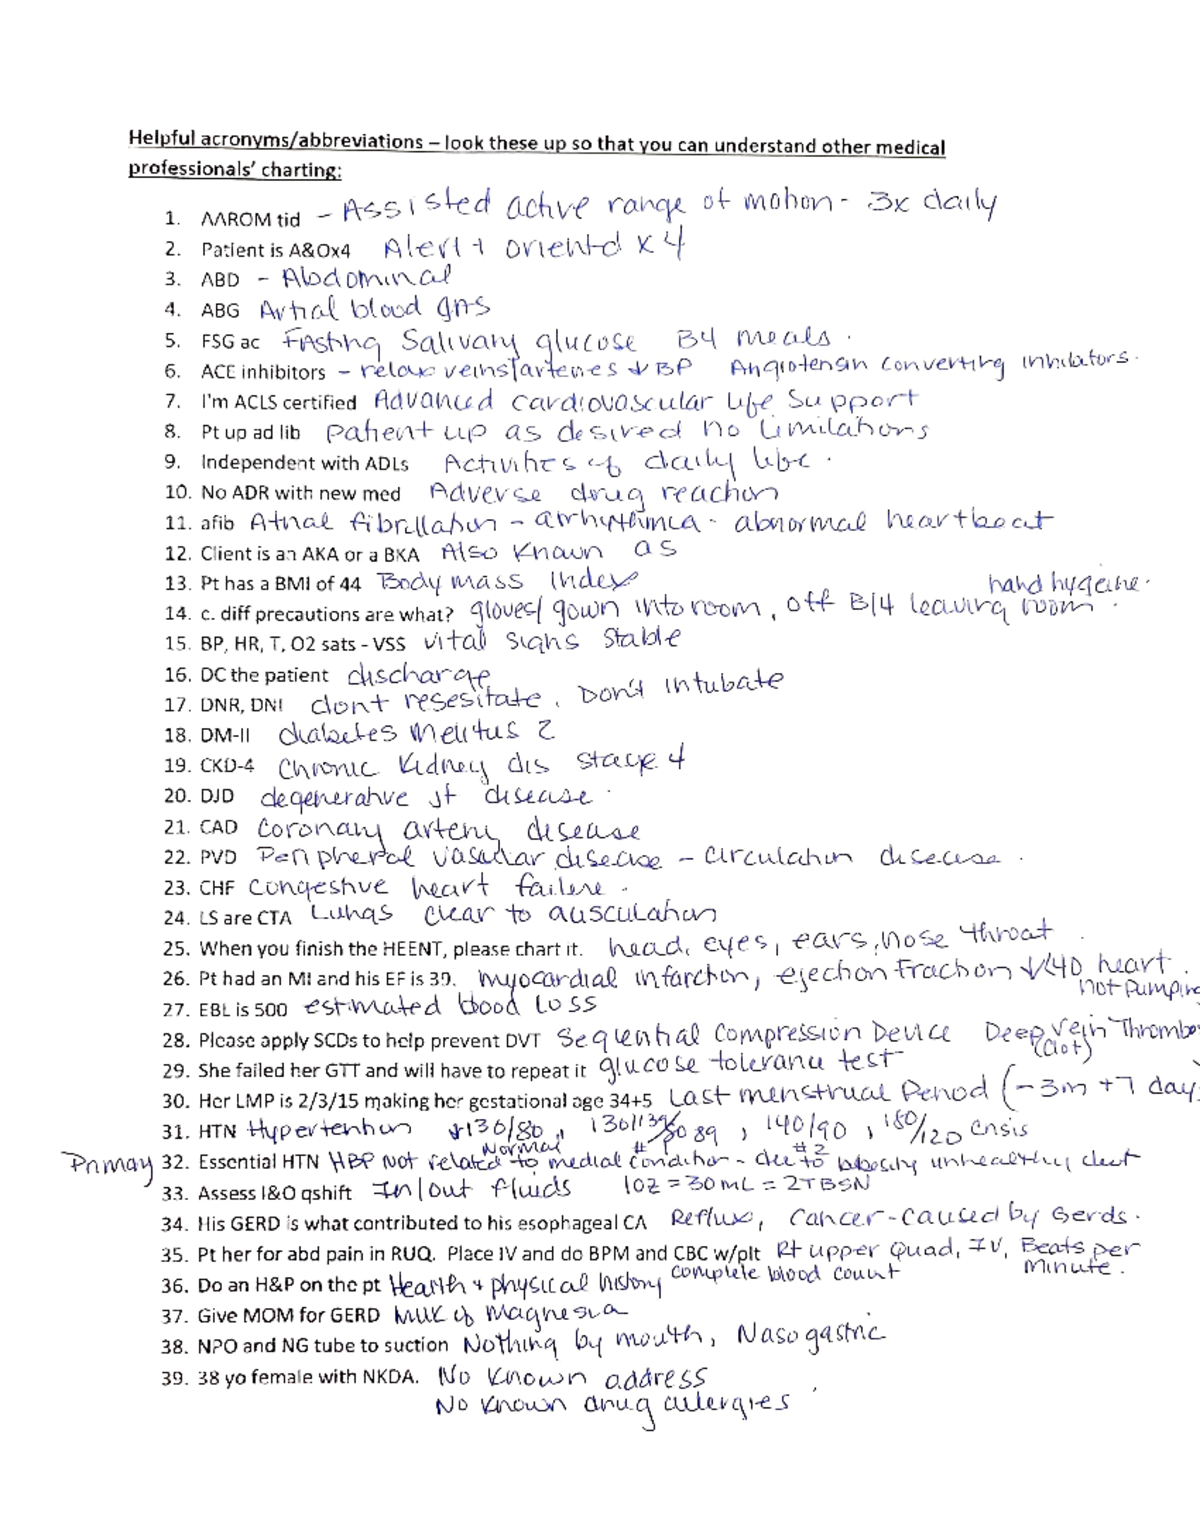 Helpful acronyms/abbreviations – look these up so that you can understand other medical
professionals' charting:
1. AAROM tid – Assisted active range of motion - 3x daily
2. Patient is A&Ox4 Alert + oriented x 4
3. ABD – Abdominal
4. ABG Artial blood gas
5. FSG ac Fasting Salivary glucose B4 meals.
6. ACE inhibitors – relax veins/arteries ↓ BP Angiotensin converting inhibitors.
7. I'm ACLS certified Advanced cardiovascular life Support
8. Pt up ad lib patient up as desired no limitations
9. Independent with ADLs Activities of daily live.
10. No ADR with new med Adverse drug reaction
11. afib Atrial fibrillation - arrhythmia - abnormal heartbeat
12. Client is an AKA or a BKA Also Known as
13. Pt has a BMI of 44 Body mass Index
hand hygeine.
14. c. diff precautions are what? gloves/gown into room, off B/4 leaving room.
15. BP, HR, T, O2 sats - VSS vital signs stable
16. DC the patient discharge
17. DNR, DNI dont resesitate. Don't intubate
18. DM-II diabetes Melitus 2
19. CKD-4 Chronic Kidney dis stage 4
20. DJD degenerative jt disease.
21. CAD coronary artery disease
22. PVD Peripheral vascular disease - circulation disease.
23. CHF congestive heart failure.
24. LS are CTA Lungs clear to ausculation
25. When you finish the HEENT, please chart it. head, eyes, ears, nose throat.
26. Pt had an MI and his EF is 30. myocardial infarction, ejection fraction ↓<40 heart.
not pumping
27. EBL is 500 estimated blood loss
28. Please apply SCDs to help prevent DVT Sequential Compression Device Deep Vein Thrombo
(clot)
29. She failed her GTT and will have to repeat it glucose tolerance test
30. Her LMP is 2/3/15 making her gestational age 34+5 Last menstrual Period (-3m +7 days
31. HTN Hypertention ↓130/80, 130/139/80 89, 140/90, 180/120 crisis
Normal #1 #2
Primay 32. Essential HTN HBP Not related to medial condition - due to obesity unhealthy diet
33. Assess I&O qshift In/out fluids 1oz = 30mL = 2TBSN
34. His GERD is what contributed to his esophageal CA Reflux, Cancer-caused by Gerds.
35. Pt her for abd pain in RUQ. Place IV and do BPM and CBC w/plt Rt upper Quad, IV, Beats per
Minute.
complete blood count
36. Do an H&P on the pt Hearth + physical history
37. Give MOM for GERD Milk of Magnesia
38. NPO and NG tube to suction Nothing by mouth, Nasogastric
39. 38 yo female with NKDA. No Known address
No known drug allergies